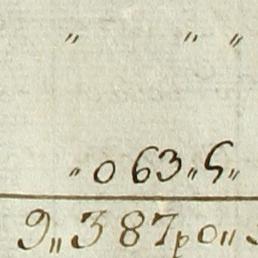 " " "
"063"5"
9"387p0"